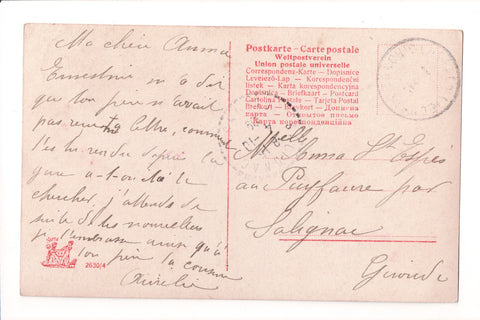 Ma chère Anna
Ernestine m'a dit
que ton père n'avait
pas reçu ma lettre, comme
l'es tu rendu depuis la
gare a-t-on été le
chercher, j'attends de
suite de tes nouvelles
je t'embrasse ainsi qu'à
ton père ta cousine
Aurélie
Postkarte – Carte postale
Weltpostverein
Union postale universelle
Correspondenz-Karte – Dopisnice
Levelező-Lap – Korespondenční
listek – Karta korespondencyjna
Dopisnica – Briefkaart – Postcard
Cartolina Postale – Tarjeta Postal
Brefkort – Brevkort – Дописна
карта – Открытое письмо
Карта кореспонденційна
Melle Anna
au Puyfaure par
Salignac
Gironde
2630/4